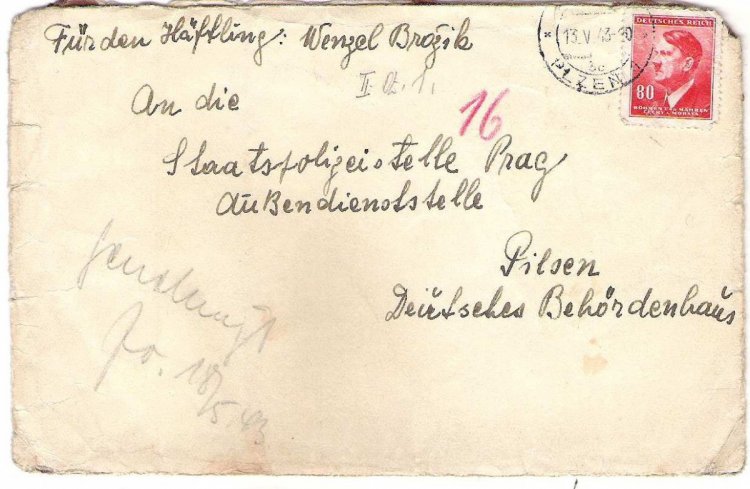 Für den Häftling: Wenzel Brožik
II. a. 1.
16
An die
Staatspolizeistelle Prag
Außendienststelle
Pilsen
Deutsches Behördenhaus
18/5.43
13.V.43
PLZEŇ 1
DEUTSCHES REICH
80
BÖHMEN UND MÄHREN
ČECHY A MORAVA